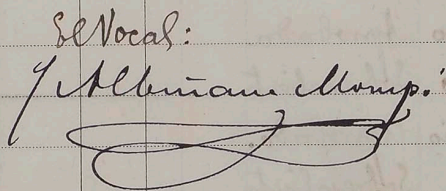 El Vocal:
J Albiñana Mompó